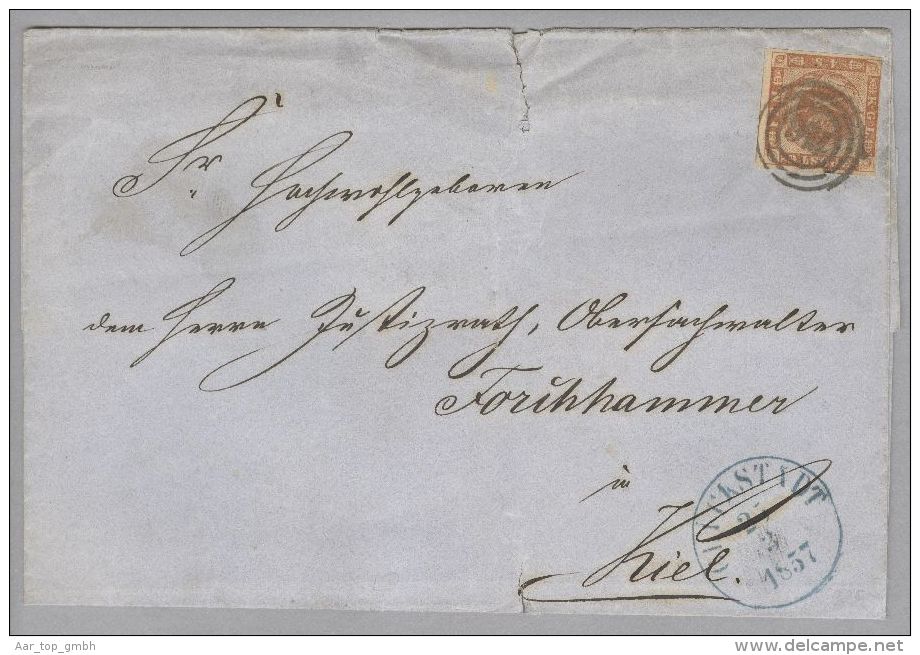 Sr Hochwohlgeboren
dem Herrn Justizrath, Obersachwalter
Forchhammer
in
Kiel.
1857
Aar_top_gmbh
www.delcampe.net